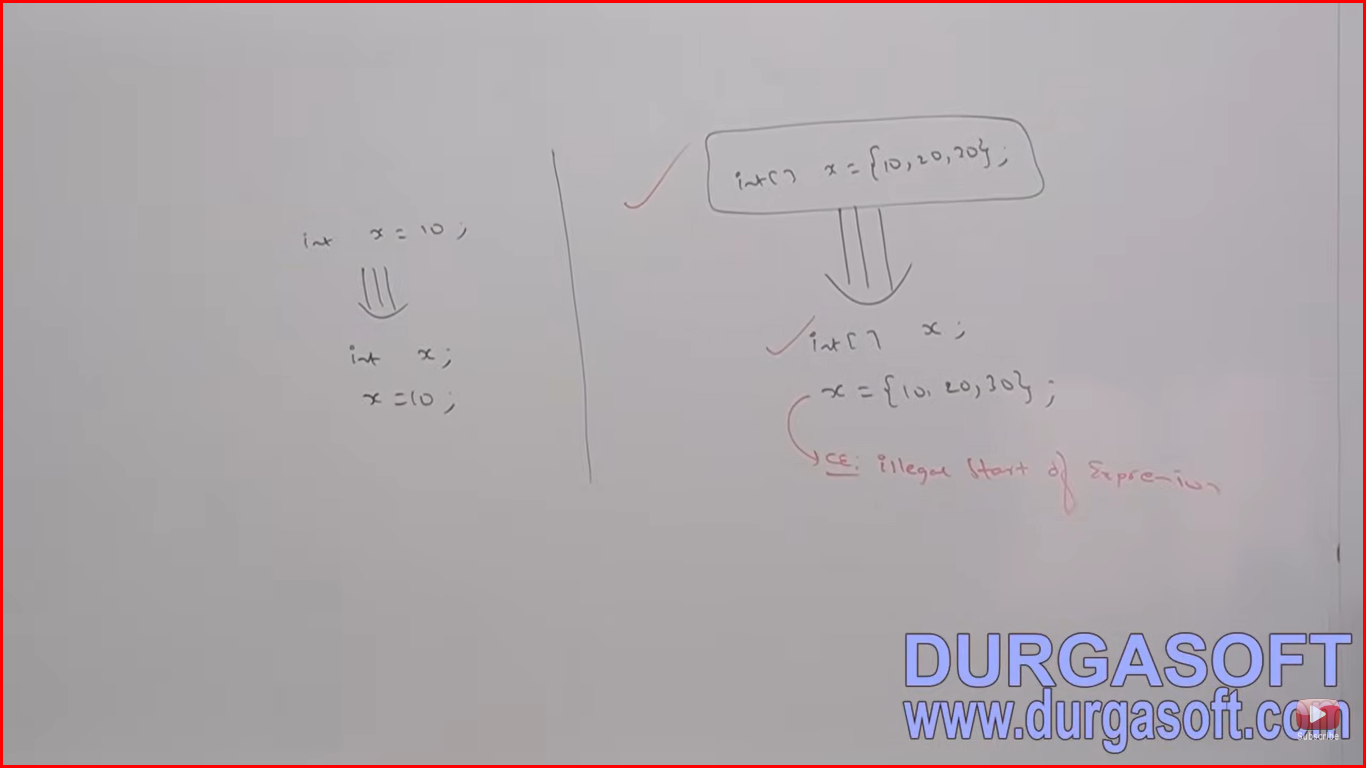 int x = 10 ;
int x ;
x = 10 ;
int[] x = {10, 20, 30} ;
int[] x ;
x = {10, 20, 30} ;
CE: illegal start of Expression
DURGASOFT
www.durgasoft.com
Subscribe